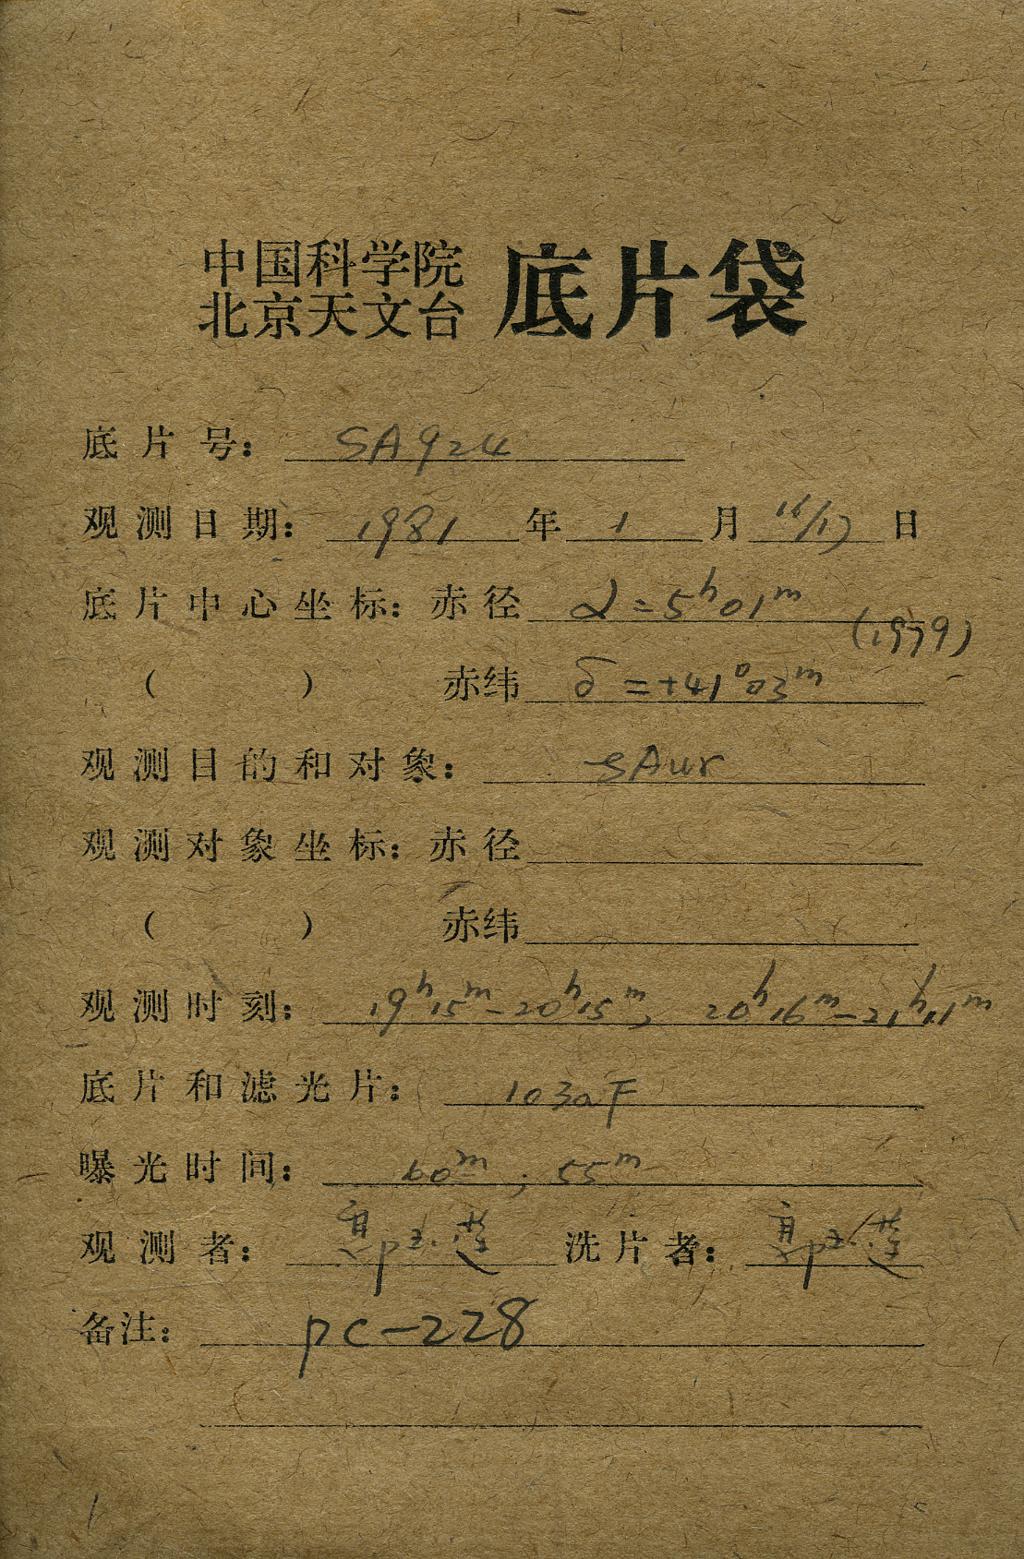 中国科学院
北京天文台 底片袋
底片号: SA924
观测日期: 1981 年 1 月 16/17 日
底片中心坐标: 赤径 α=5ʰ01ᵐ
(1979)
( ) 赤纬 δ=+41°03ᵐ
观测目的和对象: SAur
观测对象坐标: 赤径
( ) 赤纬
观测时刻: 19ʰ15ᵐ-20ʰ15ᵐ, 20ʰ16ᵐ-21ʰ11ᵐ
底片和滤光片: 103aF
曝光时间: 60ᵐ; 55ᵐ
观测者: 洗片者:
备注: pc-228